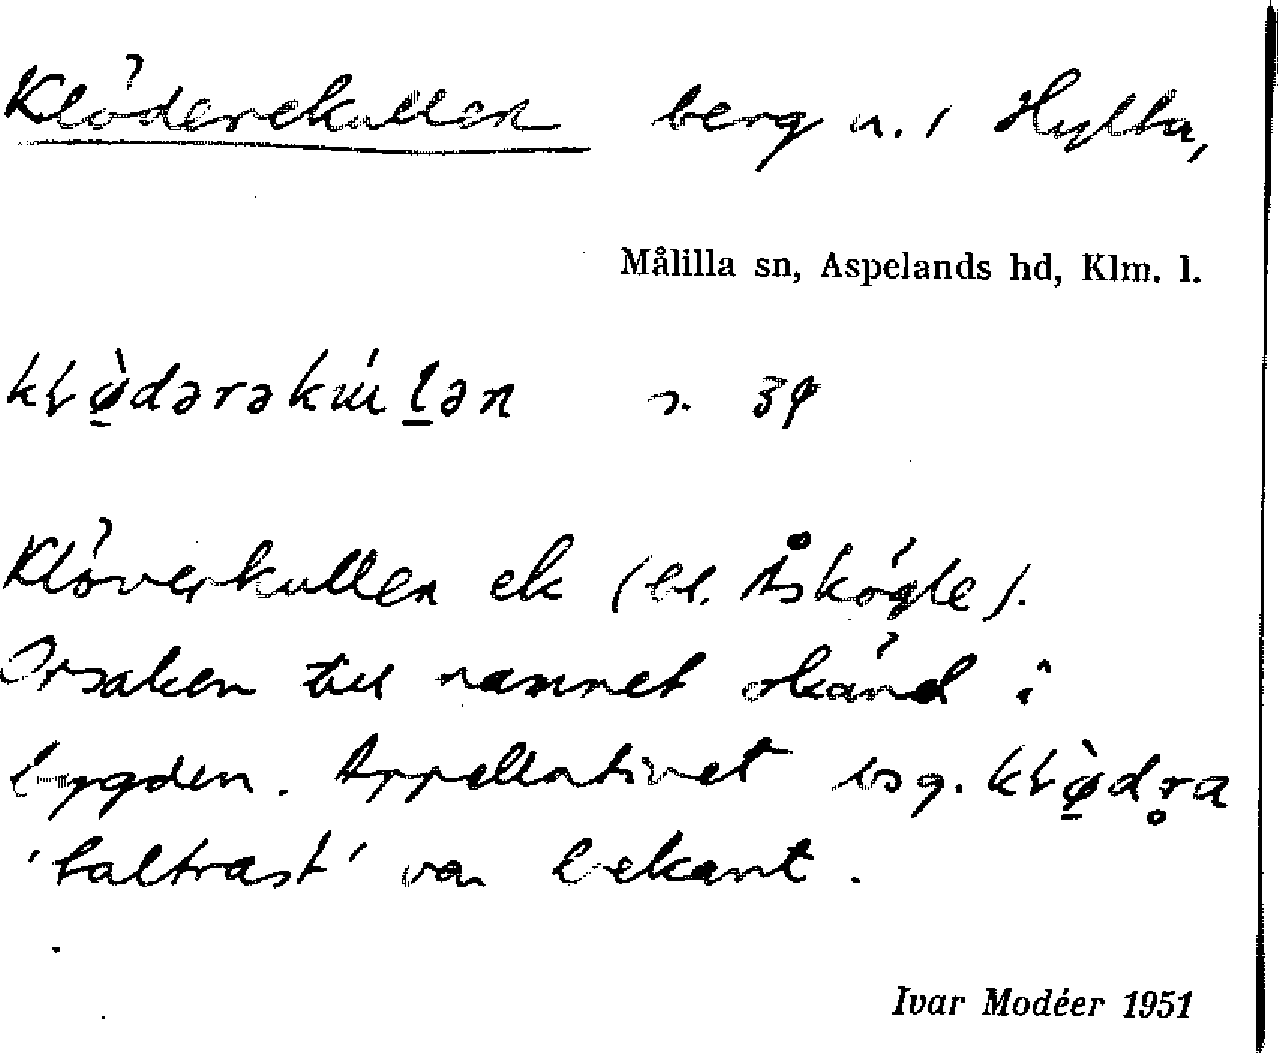 Klöderekullen berg n. i Hylta,
Målilla sn, Aspelands hd, Klm. l.
s. 39
Klöverkullen ek (bl. Åskógle).
Orsaken till namnet okänd i
bygden. Appellativet
'taltrast' var bekant.
Ivar Modéer 1951